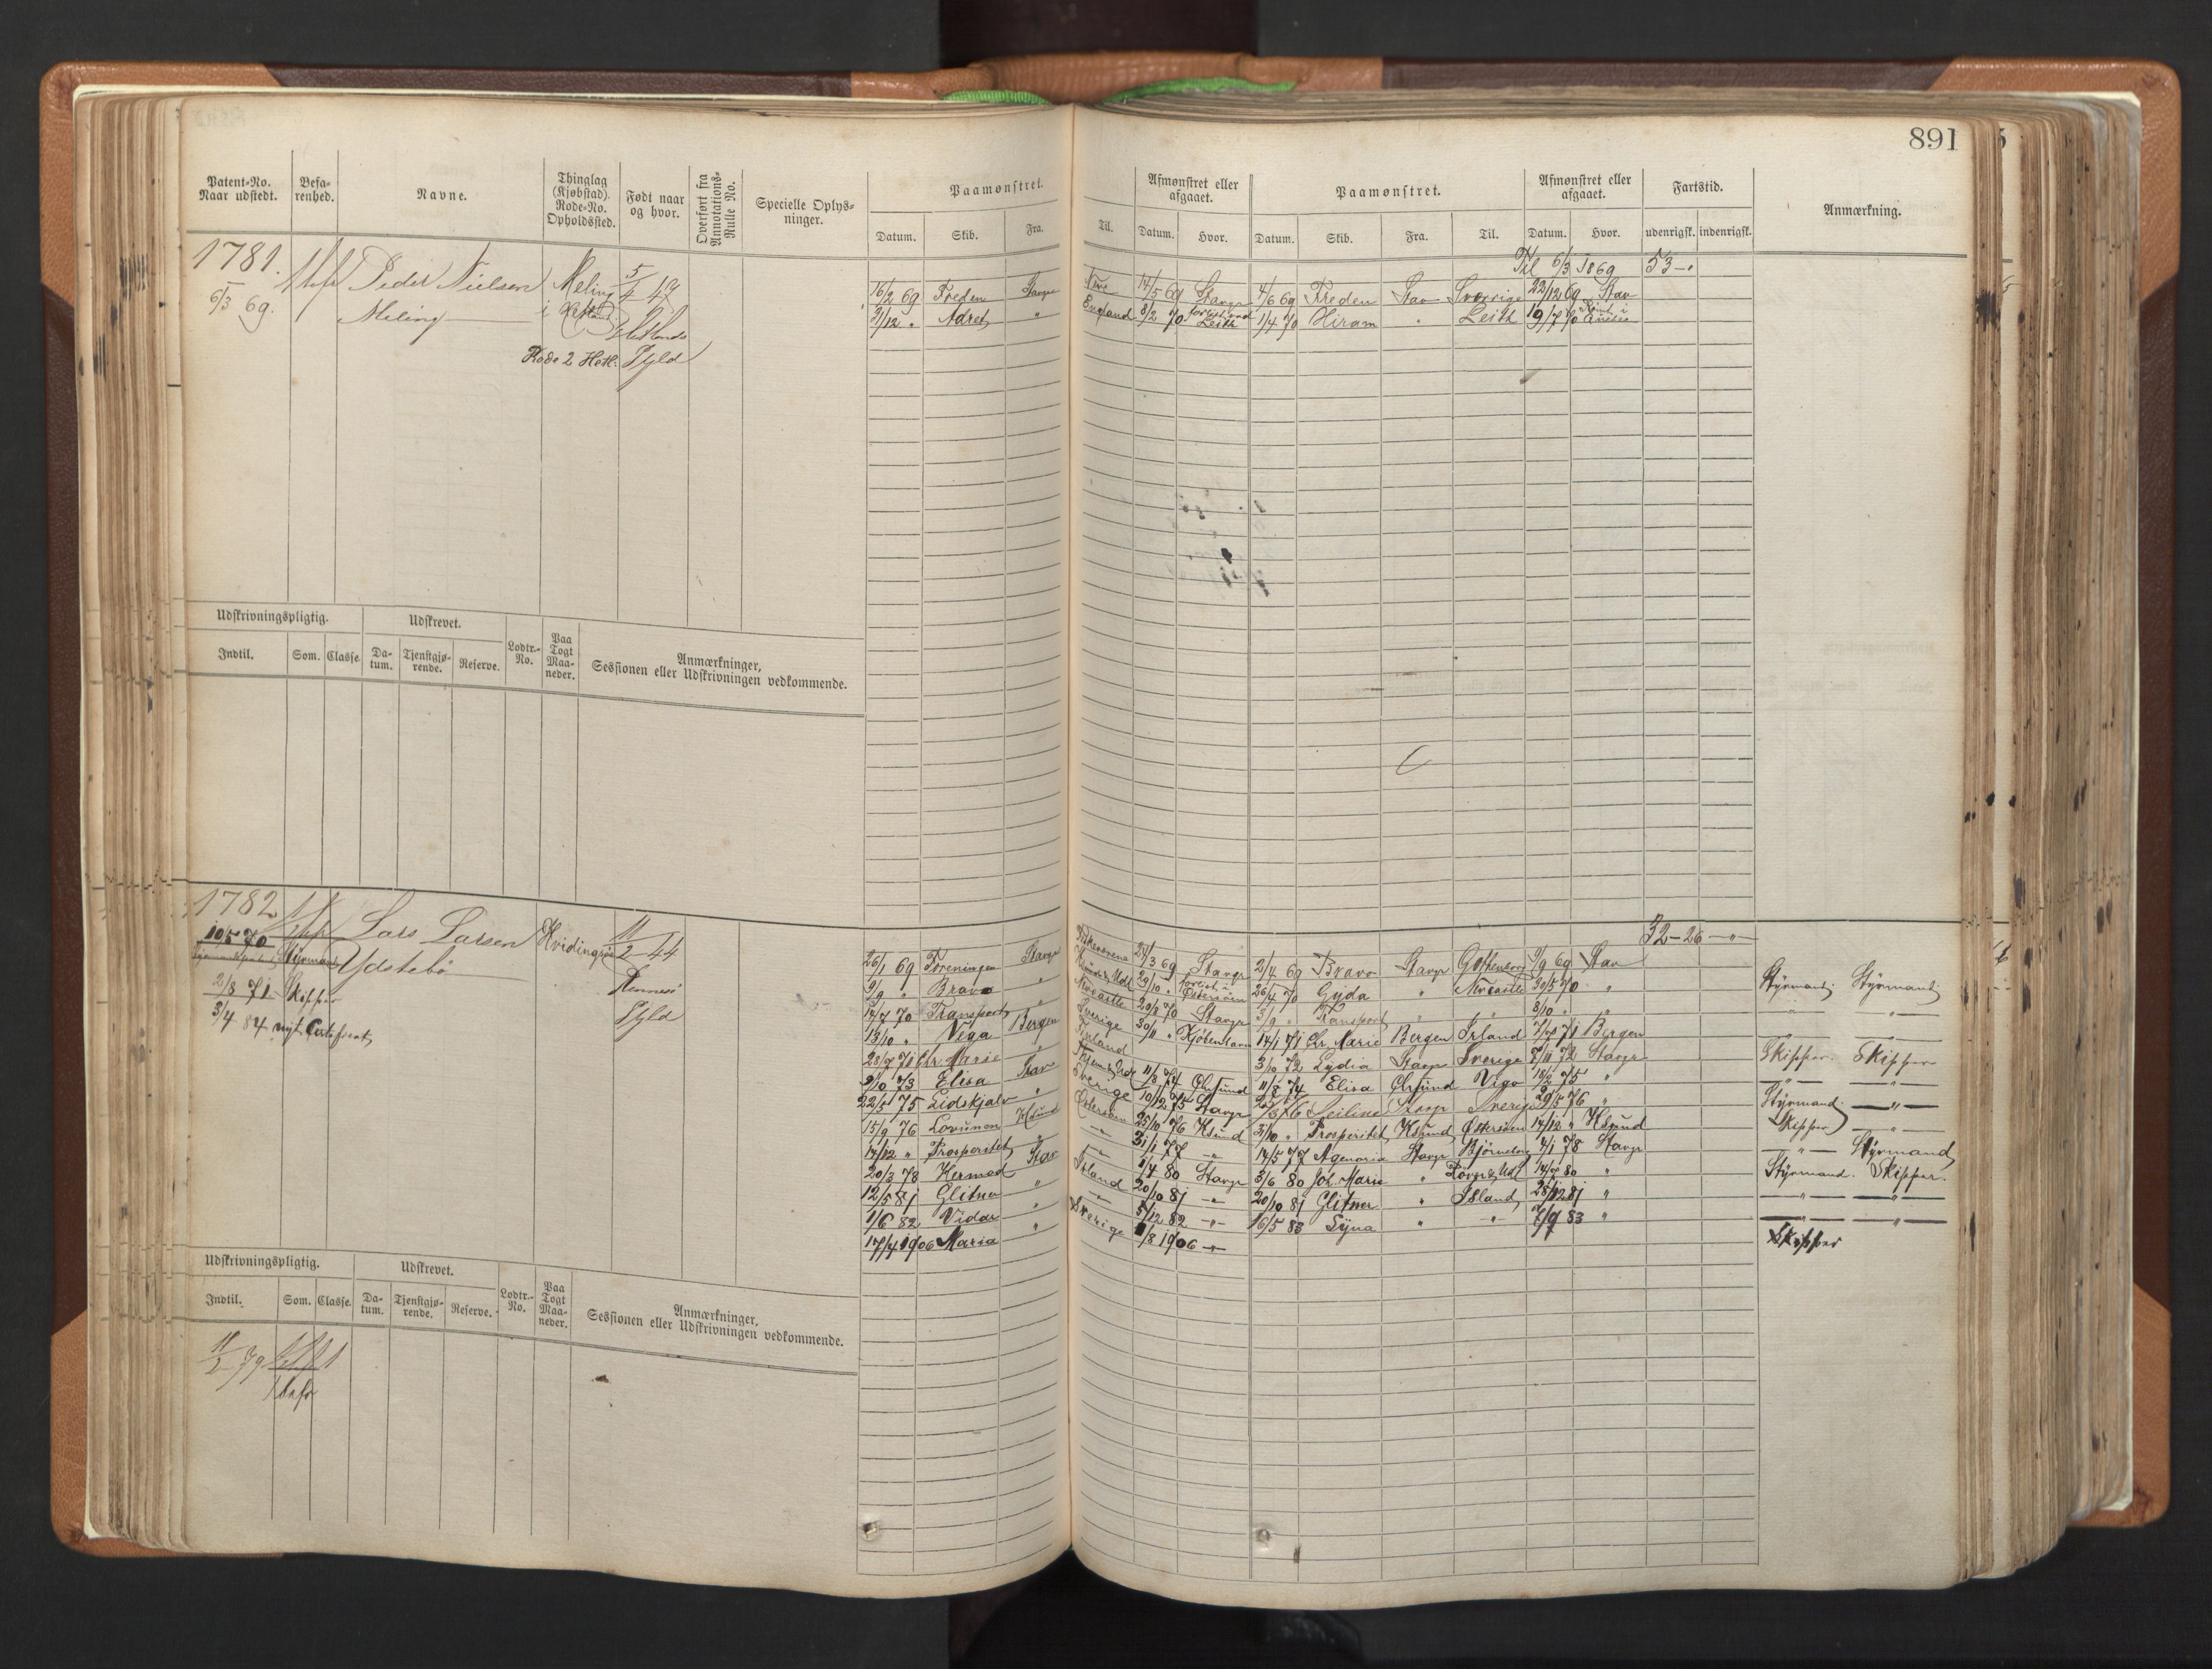 891
Patent-No. Naar udstedt.
Befarenhed.
Navne.
Thinglag (Kjøbstad). Rode-No. Opholdssted.
Født naar og hvor.
Overført fra Annotations-Rulle No.
Specielle Oplysninger.
Paamønstret.
Datum. Skib. Fra. Til.
Afmønstret eller afgaaet.
Datum. Hvor.
Paamønstret.
Datum. Skib. Fra. Til.
Afmønstret eller afgaaet.
Datum. Hvor.
Fartstid.
udenrigsk. indenrigsk.
Anmærkning.
1781.
6/3 69.
Peder Nielsen
Meling
Meling
i Hetland
Rode 2 Hetl.
5/4 47
Hetlands
Sgld
Til 6/3 1869 53 - "
16/2 69 Freden Stavgr
14/5 69 Stavgr 4/6 69 Freden Stav Sverrige 22/12 69 Stav
31/12 " Adret "
England 8/2 70 Leith 1/4 70 Hiram " Leith 19/7 70
Udskrivningspligtig.
Udskrevet.
Indtil. Som. Classe.
Datum. Tjenstgjørende. Reserve.
Lodtr.-No.
Paa Togt Maaneder.
Anmærkninger, Sessionen eller Udskrivningen vedkommende.
1782
10/5 70
Styrmand
2/8 71 Skipper
3/4 84 nyt Certificat
Lars Larsen
Ydstebö
Hvidingsø
11/2 44
Rennesø
Sgld
32 - 26 - "
26/1 69 Foreningen Stavgr
24/3 69 Stavgr 2/4 69 Bravo Stavgr Gothenborg 9/9 69 Stav
9/9 " Bravo "
29/10 " forlist i Østersøen 26/4 70 Gyda " Newcastle 30/5 70 "
Styrmand Styrmand
14/7 70 Transport "
Newcastle 20/8 70 Stavgr 3/9 " Transport " " 8/10 " "
" "
13/10 " Vega Bergen
Sverige 30/11 " Kjøbenhavn 14/1 71 Chr Marie Bergen Irland 7/7 71 Bergen
28/7 71 Chr Marie "
Finland
3/10 72 Lydia Stavgr Sverige 7/11 72 Stavgr
Skipper. Skipper
9/10 73 Elisa Stav
11/8 74 Chrsund 11/8 74 Elisa Chrsund Vigo 18/2 75 "
22/5 75 Lidskjalv "
Sverige 10/12 75 Stavgr
Stavgr Sverige 29/5 76 "
Styrmand. "
15/9 76 Lovunen Ksund
Østersøen 25/10 76 Ksund 3/10 " Prosperitet Ksund Østersøen 14/12 " Ksund
Skipper "
14/12 " Prosperitet "
" 31/1 77 " 14/5 77 Agenoria Stavgr Bjørneborg 4/1 78 Stavgr
" Styrmand
20/3 78 Hermod Stav
1/4 80 Stavgr 3/6 80 Joh. Marie "
14/8 80 "
Styrmand. Skipper.
12/5 81 Glitner "
Island 20/10 81 " 20/10 81 Glitner " Island 28/12 81 "
" "
1/6 82 Vidar "
" 5/12 82 " 16/5 83 Syna " " 7/9 83 "
" "
17/4 1906 Maria "
Sverige 1/8 1906 "
Skipper
Udskrivningspligtig.
Udskrevet.
Indtil. Som. Classe.
Datum. Tjenstgjørende. Reserve.
Lodtr.-No.
Paa Togt Maaneder.
Anmærkninger, Sessionen eller Udskrivningen vedkommende.
11/2 79
befr